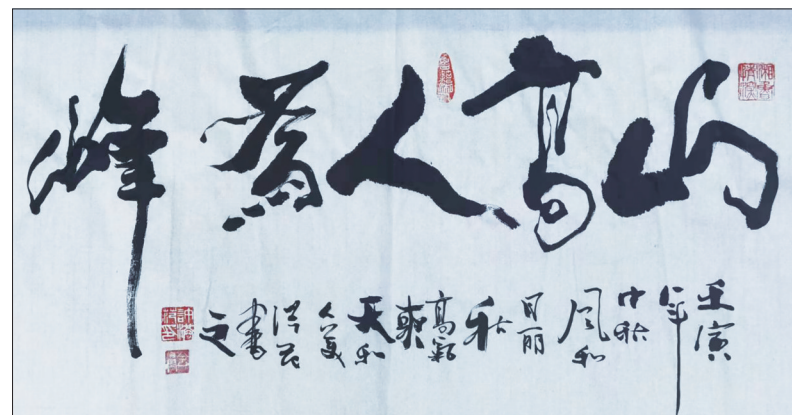 山高人為峰
壬寅
年
中秋
風和
日丽
秋
高氣
爽
天和
人美
書
之